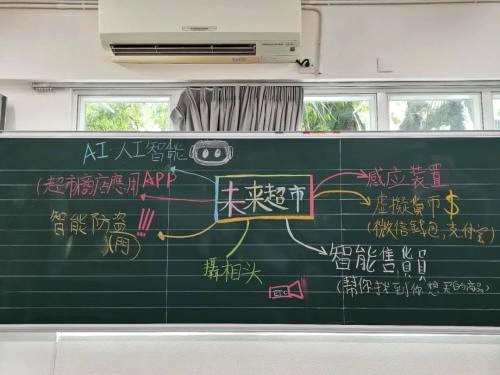 AI 人工智能
(超市商店應用APP
智能防盜!!!
(門)
未来超市
攝相头
感应装置
虚擬貨币$
(微信錢包,支付宝)
智能售貨員
(幫你找到你想买的商品)
REC